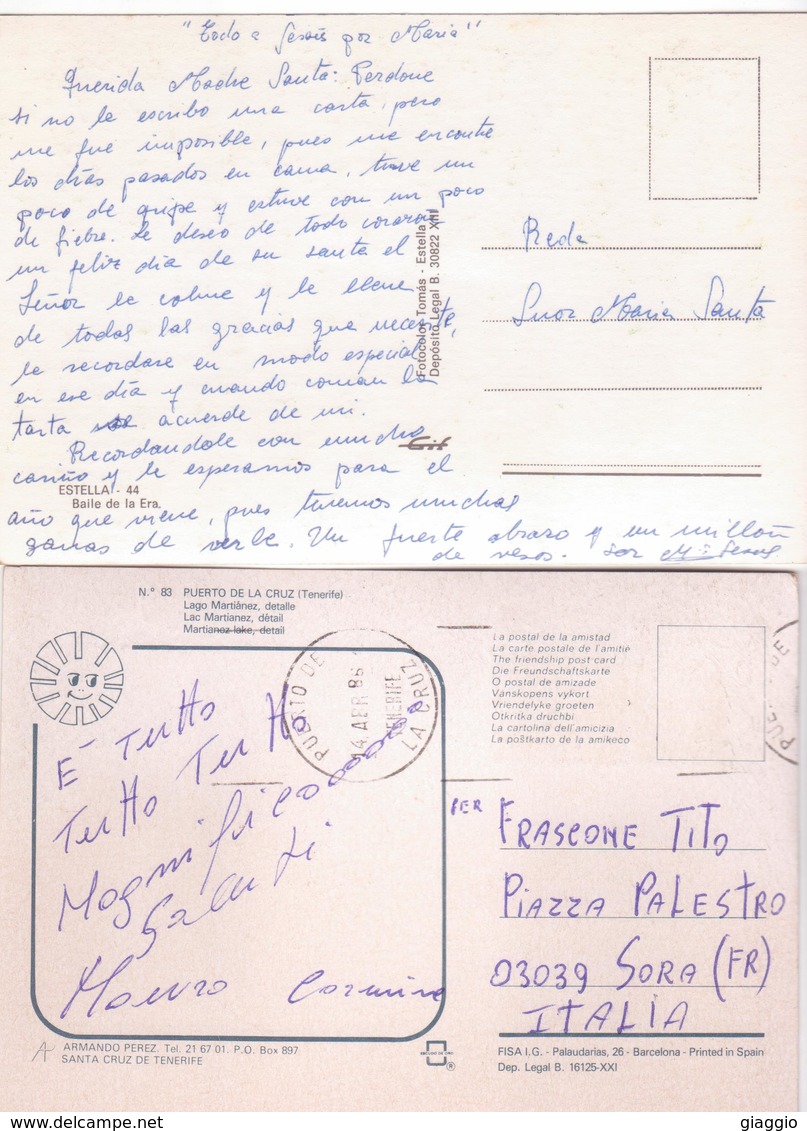 "Todo a Jesús por María"
Querida Madre Santa: Perdone
si no le escribo una carta, pero
me fue imposible, pues me encontre
los días pasados en cama, tuve un
poco de gripe y estuve con un poco
de fiebre. Le deseo de todo corazon
un feliz día de su santa el
Señor le colme y le llene
de todas las gracias que necesite,
le recordare en modo especial
en ese día y cuando coman la
tarta acuerde de mi.
Recordandole con mucho
cariño y le esperamos para el
año que viene, pues tenemos muchas
ganas de verle. Un fuerte abrazo y un millon
de vesos. Sor Mª Jesus
Reda
Suor Maria Santa
Fotocolor Tomás - Estella
Depósito Legal B. 30822 XIII
Gif
ESTELLA - 44
Baile de la Era.
N.° 83 PUERTO DE LA CRUZ (Tenerife)
Lago Martiánez, detalle
Lac Martianez, détail
Martianez lake, detail
PUERTO DE LA CRUZ
14 ABR 86
TENERIFE
La postal de la amistad
La carte postale de l'amitié
The friendship post card
Die Freundschaftskarte
O postal de amizade
Vanskopens vykort
Vriendelyke groeten
Otkritka druchbi
La cartolina dell'amicizia
La poŝtkarto de la amikeco
PUE DE
E' Tutto
Tutto Tutto
Magnificooooooo
Saluti
Mauro Carmine
PER FRASCONE TITO
PIAZZA PALESTRO
03039 SORA (FR)
ITALIA
A ARMANDO PEREZ. Tel. 21 67 01. P.O. Box 897
SANTA CRUZ DE TENERIFE
®
FISA I.G. - Palaudarias, 26 - Barcelona - Printed in Spain
Dep. Legal B. 16125-XXI
www.delcampe.net
giaggio